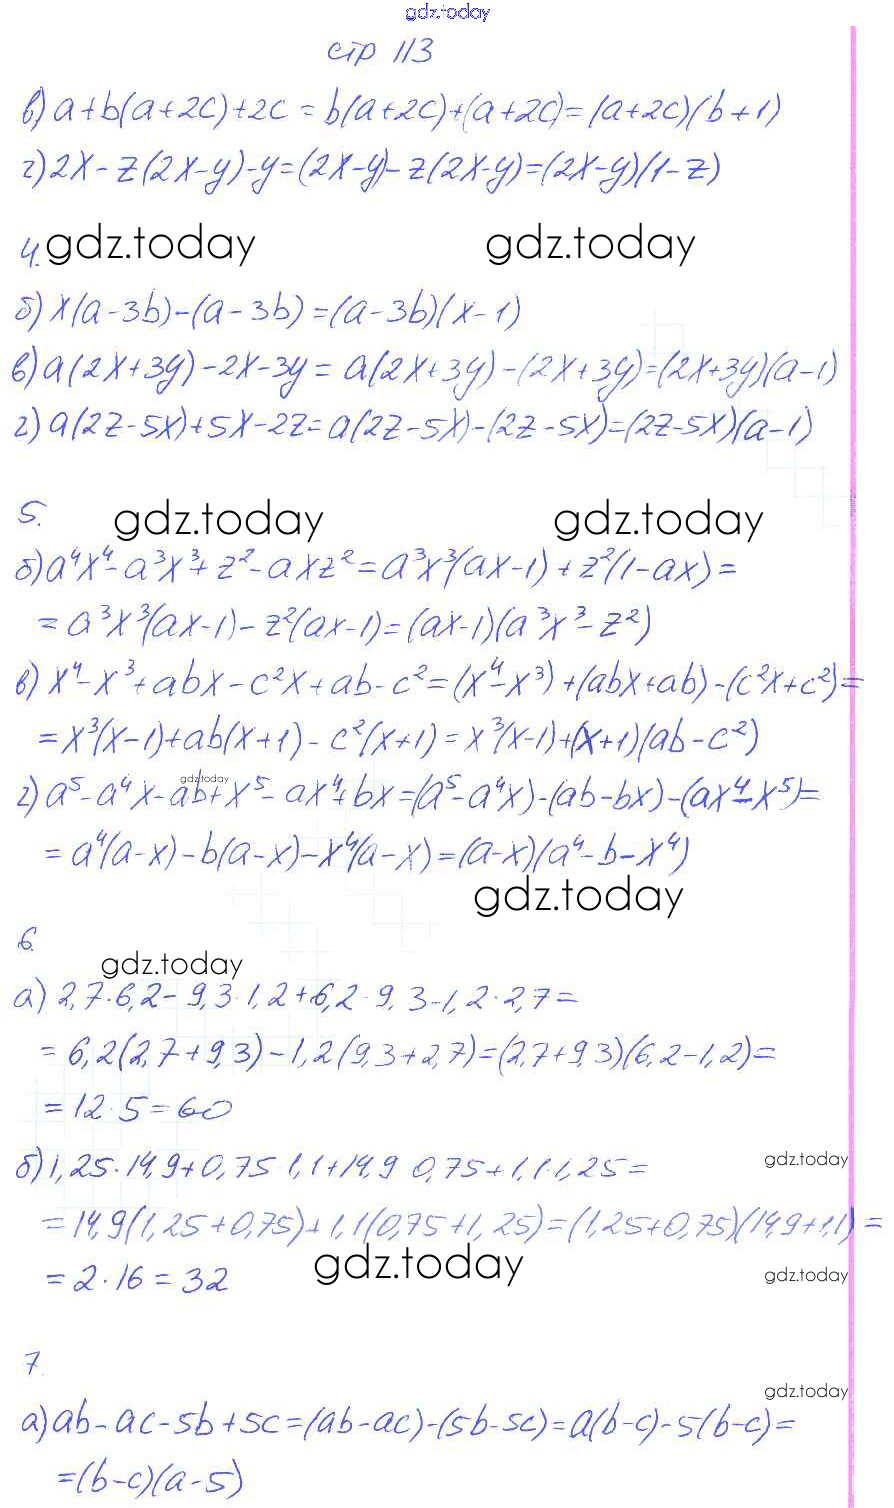 gdz.today
стр 113
в) a+b(a+2c)+2c = b(a+2c)+(a+2c)=(a+2c)(b+1)
г) 2x-z(2x-y)-y=(2x-y)-z(2x-y)=(2x-y)(1-z)
4. gdz.today gdz.today
б) x(a-3b)-(a-3b)=(a-3b)(x-1)
в) a(2x+3y)-2x-3y= a(2x+3y)-(2x+3y)=(2x+3y)(a-1)
г) a(2z-5x)+5x-2z=a(2z-5x)-(2z-5x)=(2z-5x)(a-1)
5. gdz.today gdz.today
б) a⁴x⁴-a³x³+z²-axz²=a³x³(ax-1)+z²(1-ax)=
=a³x³(ax-1)-z²(ax-1)=(ax-1)(a³x³-z²)
в) x⁴-x³+abx-c²x+ab-c²=(x⁴-x³)+(abx+ab)-(c²x+c²)=
=x³(x-1)+ab(x+1)-c²(x+1)=x³(x-1)+(x+1)(ab-c²)
gdz.today
г) a⁵-a⁴x-ab+x⁵-ax⁴+bx=(a⁵-a⁴x)-(ab-bx)-(ax⁴-x⁵)=
=a⁴(a-x)-b(a-x)-x⁴(a-x)=(a-x)(a⁴-b-x⁴)
gdz.today
6.
gdz.today
а) 2,7·6,2-9,3·1,2+6,2·9,3-1,2·2,7=
=6,2(2,7+9,3)-1,2(9,3+2,7)=(2,7+9,3)(6,2-1,2)=
=12·5=60
б) 1,25·14,9+0,75·1,1+14,9·0,75+1,1·1,25= gdz.today
=14,9(1,25+0,75)+1,1(0,75+1,25)=(1,25+0,75)(14,9+1,1)=
=2·16=32 gdz.today gdz.today
7.
gdz.today
а) ab-ac-5b+5c=(ab-ac)-(5b-5c)=a(b-c)-5(b-c)=
=(b-c)(a-5)